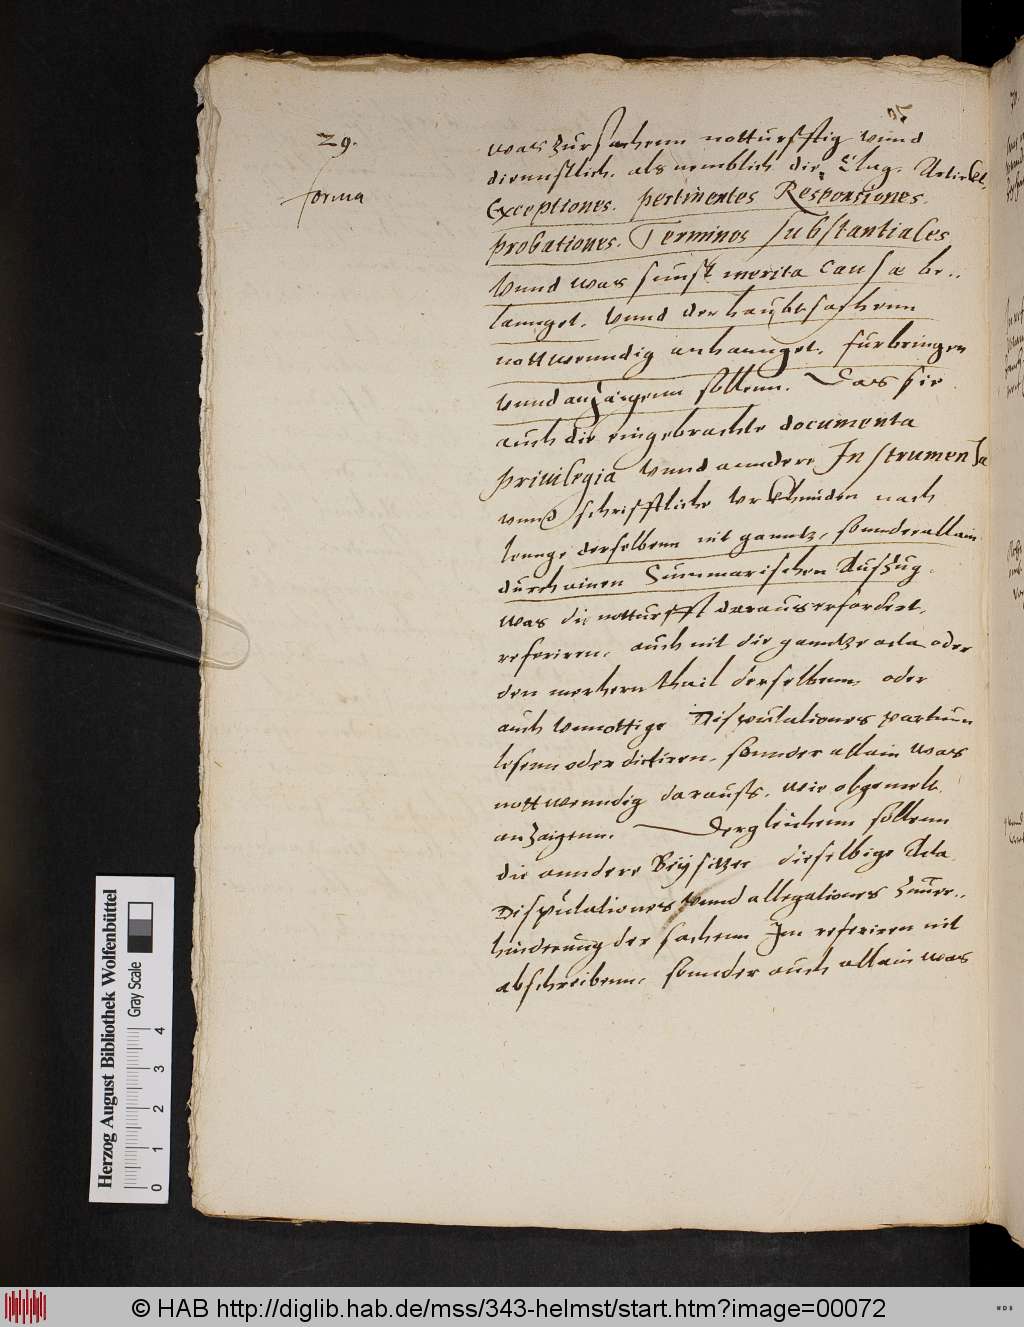 29.
forma
was zur sachenn notturfftig vnnd
diennstlich. als nemblich die Clag, Artickel,
Exceptiones. pertinentes Responsiones.
probationes. Terminos substantiales
vnnd was sunst merita causæ be-
lannget. vnnd der haubtsachenn
nottwenndig anhannget, furbringen
vnnd anzaigenn sollenn. Das sie
auch die eingebrachte documenta
priuilegia vnnd anndere Instrumenta
vnnd schrifftliche vrkhunden nach
lennge derselbenn nit ganntz, sonnder allain
durch ainen Summarischen Auszug.
was die notturfft daraus erfordert,
referiren, auch nit die ganntze acta oder
den merhern thail derselbenn, oder
auch vnnottige Disputationes partium
lesenn oder dictiren, sonnder allain was
nottwenndig darauss, wie obgemelt,
anzaigenn. Dergleichenn sollenn
die anndere Beysitzer dieselbige Acta
Disputationes vnnd allegationes zuuer-
hinderung der sachenn Im referiren nit
abschreibenn, sonnder auch allain was
Herzog August Bibliothek Wolfenbüttel
Gray Scale
0 1 2 3 4
© HAB http://diglib.hab.de/mss/343-helmst/start.htm?image=00072